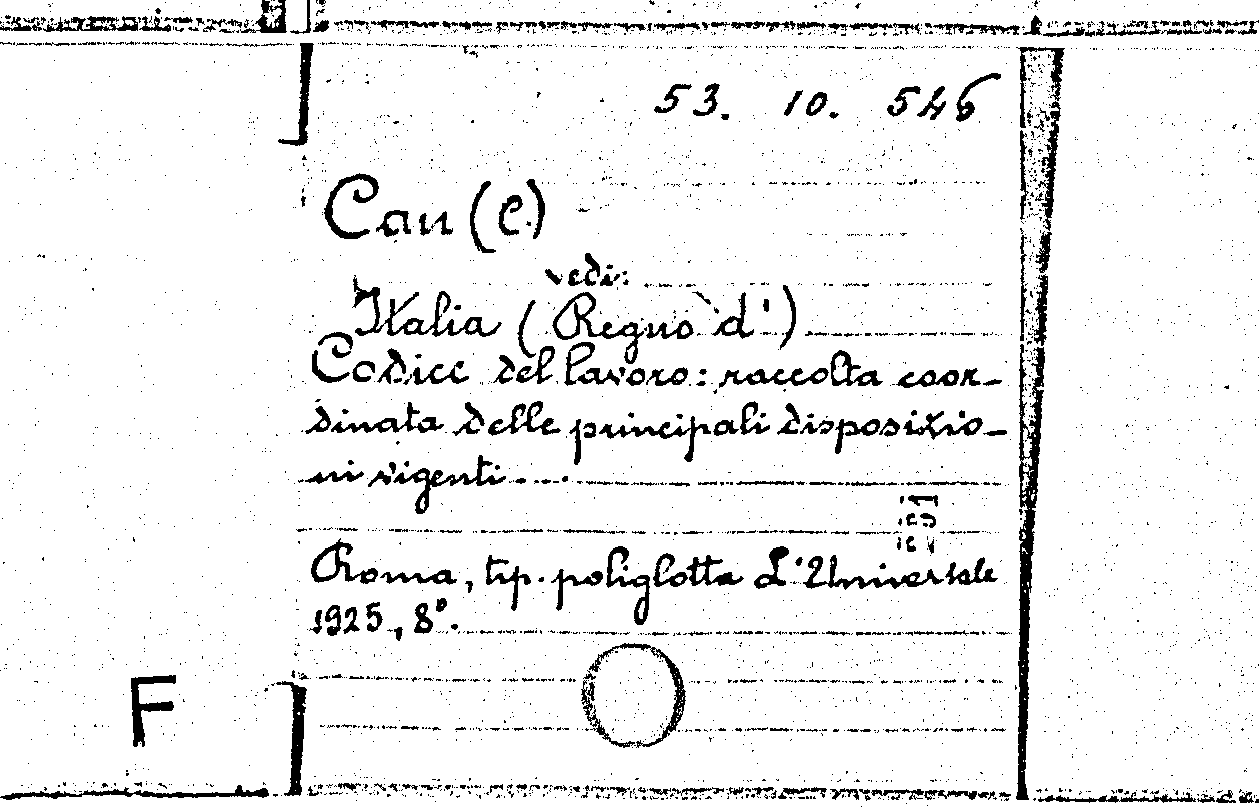 53. 10. 546
Cau (C)
vedi:
Italia (Regno d')
Codice del lavoro: raccolta coor-
dinata delle principali disposizio-
ni vigenti....
Roma, tip. poliglotta L'Universale
1925, 8°.
F